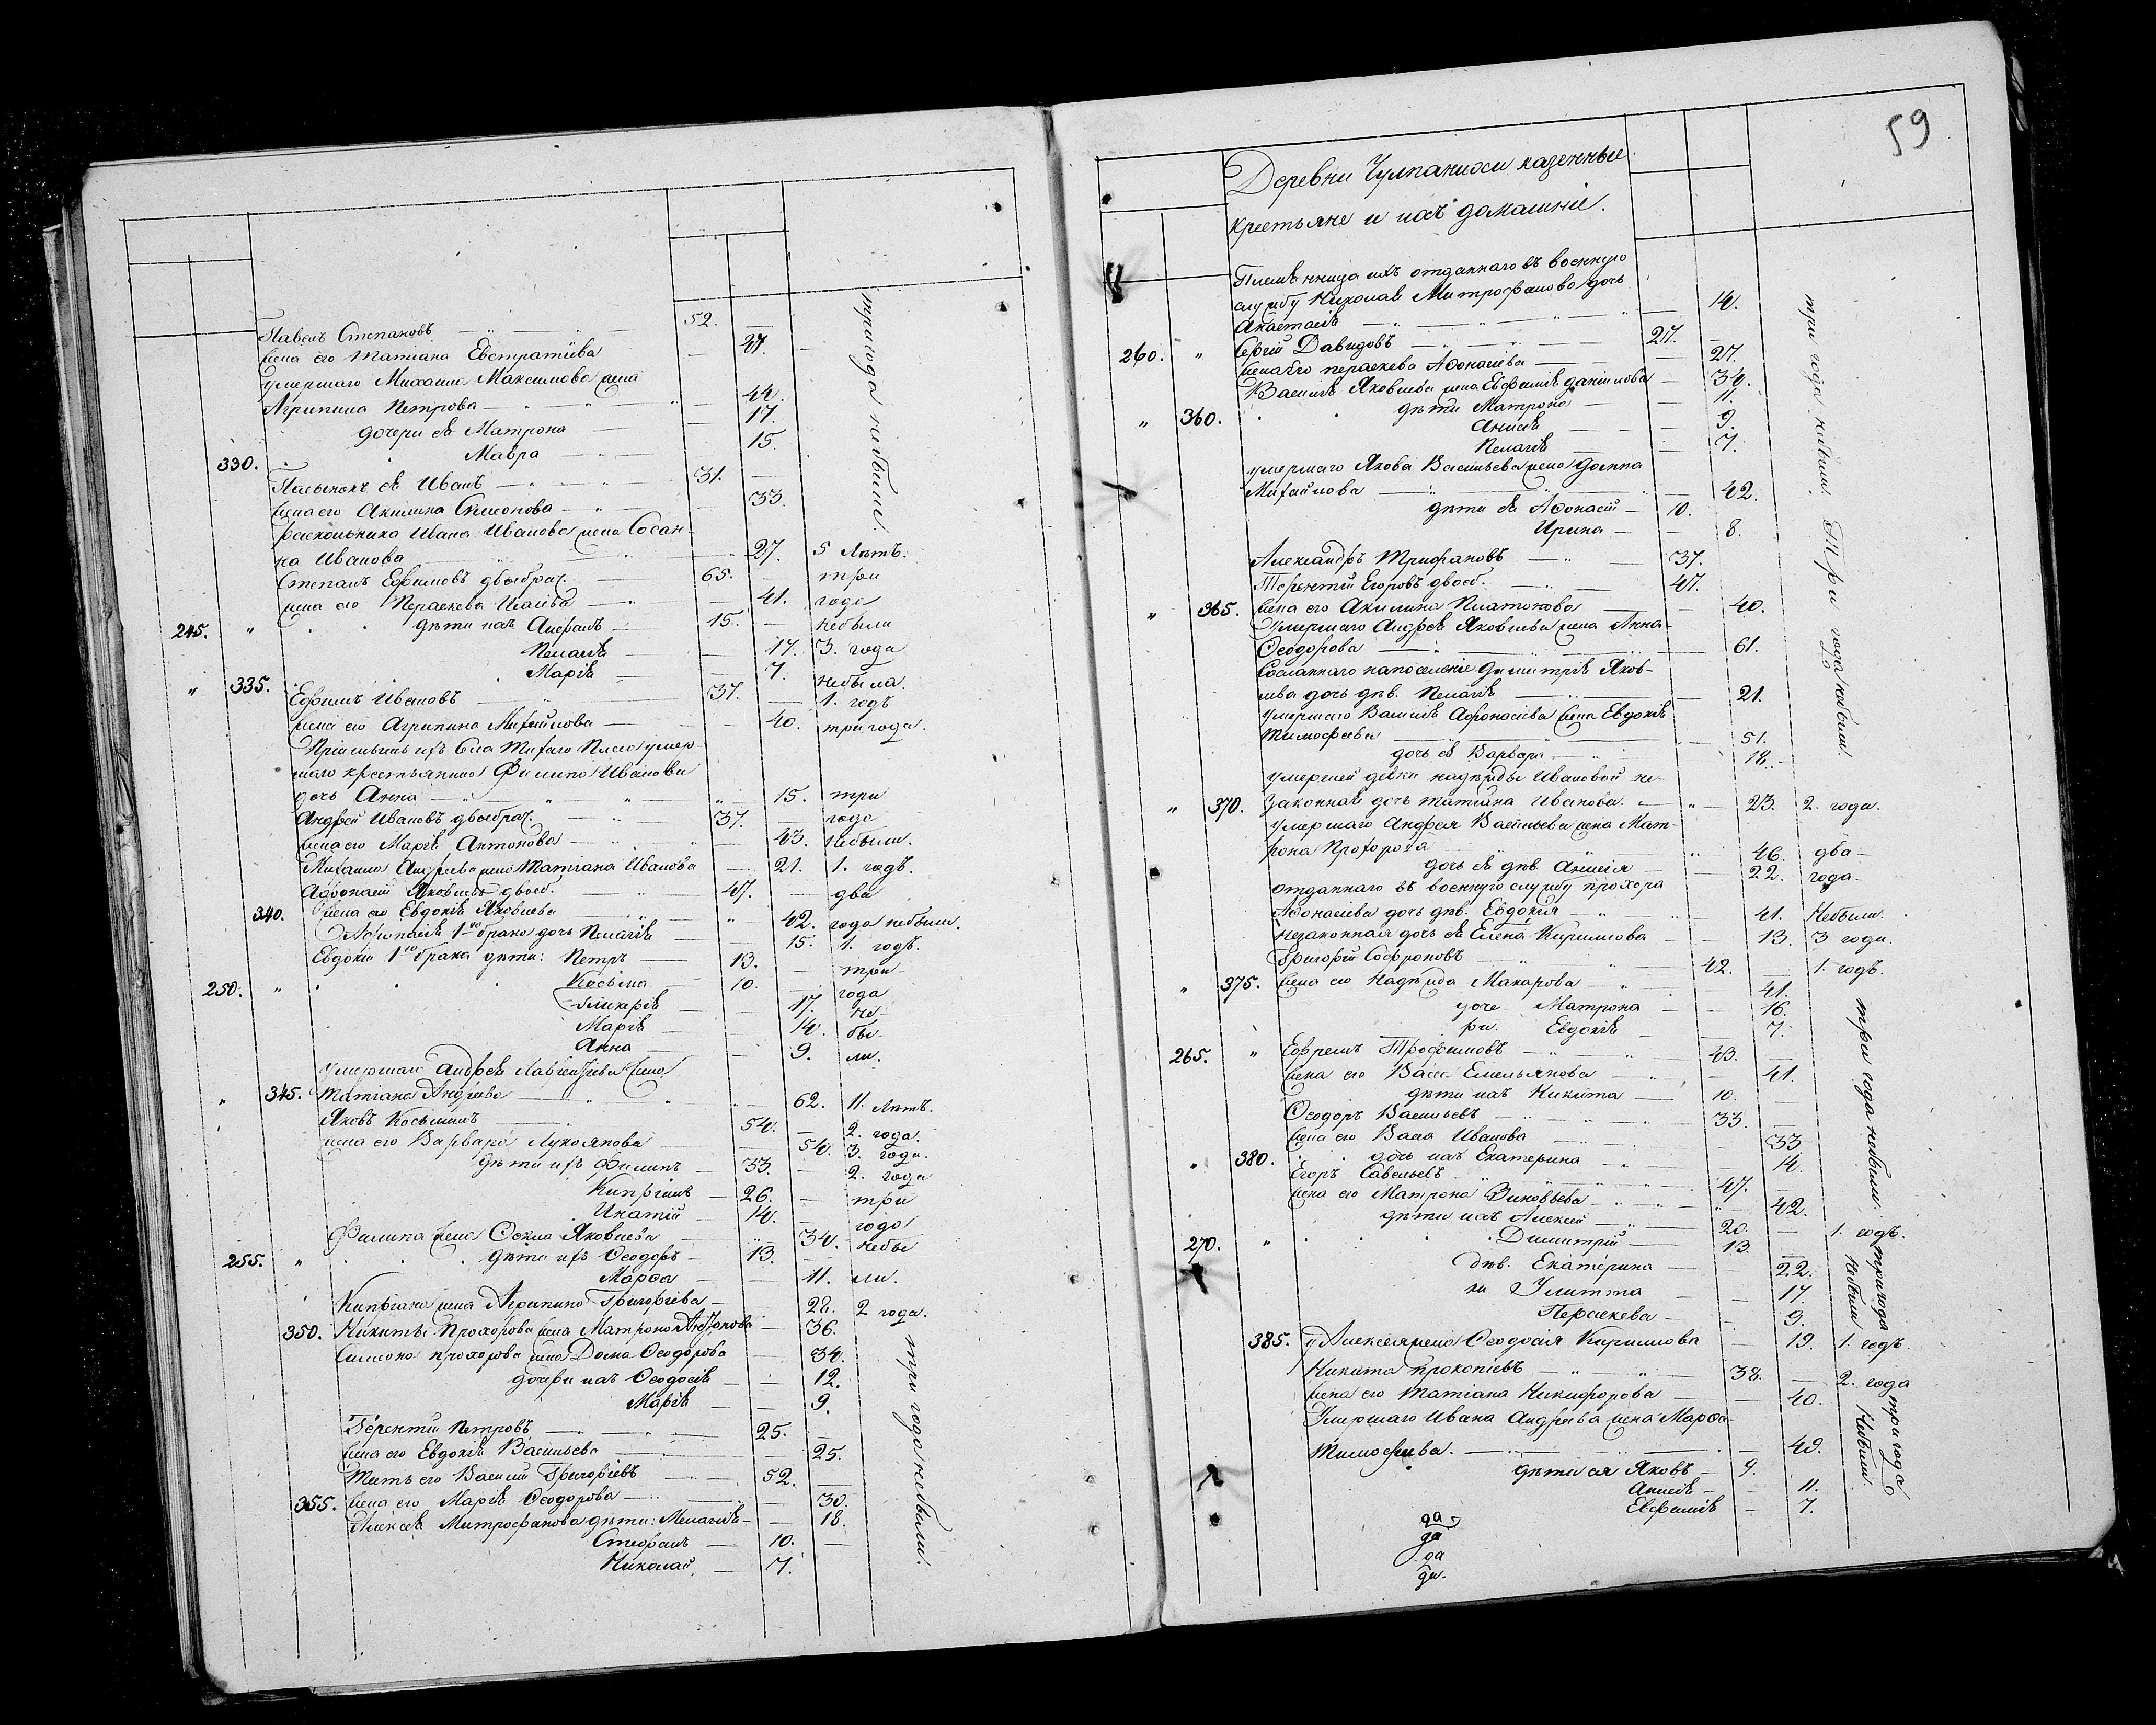 Павелъ Степановъ — 52. —
жена его Татiана Евстратiева — 27.
умершаго Михаила Максимова жена
Агрипина Петрова — 44.
дочери ея Матрона — 17.
330. Мавра — 15.
три года небыли.
Пасынокъ ея Иванъ — 31. —
жена его Акилина Симонова — 33.
раскольника Ивана Иванова жена Сосан-
на Иванова — 27. 5 лѣтъ.
Степанъ Ефимовъ двоебрач. — 65. — три
жена его Параскева Исаiева — 41. года
245. " дѣти ихъ Аверанъ — 15. — небыли
Пелагiя — 17. 3. года
" 335. Марiя — 7. небыла.
Ефимъ Ивановъ — 37. — 1. годъ
жена его Агрипина Михайлова — 40. три года.
Филипа Иванова
дочь Анна — 15. три
Андрей Ивановъ двоебрач. — 37. — года
жена его Марiя Антонова — 43. небыли.
Михаила Андреева жена Татiана Иванова — 21. 1. годъ.
Афонасiй Яковлевъ двоеб. — 47. — два
340. жена его Евдокiя Яковлева — 42. года небыли.
Афонасiя 1го брака дочь Пелагiя — 15. 1. годъ.
Евдокiи 1го брака дѣти: Петръ — 13. — три
250. " Косьма — 10. — года
Гликерiя — 17. не-
Марiя — 14. бы-
Анна — 9. ли.
умершаго Андрея Лаврентьева жена
" 345. Татiана Андреева — 62. 11. лѣтъ.
Яковъ Косьминъ — 54. — 2. года.
жена его Варвара Лукоянова — 54. 3. года.
дѣти ихъ Филипъ — 33. — 2. года
Кипрiанъ — 26. — три
Игнатiй — 14. — года
Филипа жена Фекла Яковлева — 34. небы
255. " дѣти ихъ Феодоръ — 13. —
Марфа — 11. ли.
Кипрiана жена Агрипина Григорiева — 28. 2 года.
350. Никиты Прохорова жена Матрона — 36.
Симеона Прохорова жена Домна Феодорова — 34.
дочери ихъ Феодосiя — 12.
Марiя — 9.
Терентiй Петровъ — 25. —
жена его Евдокiя Васильева — 25.
Тесть его Василiй Григорiевъ — 52. —
355. жена его Марiя Феодорова — 30.
Алексея Митрофанова дѣти: Меланiя — 18.
Стефанъ — 10. —
Николай — 7.
три года небыли.
59
Деревни Чулпанихи казенные
крестьяне и ихъ домашнiе.
Племянница ихъ отданнаго въ военную
службу Николая Митрофанова дочь
Анастасiя — 14.
260. " Сергiй Давидовъ — 27. —
жена его Параскева Афонасiева — 27.
Василiя Яковлева жена Евфимiя Данiилова — 34.
" 360. дѣти Матрона — 11.
Анисiя — 9.
Пелагiя — 7.
умершаго Якова Васильева жена Домна
Михайлова — 42.
дѣти ея Афонасiй — 10.
Ирина — 8.
три года небыли. Три года небыли.
Александръ Трифановъ — 37.
Терентiй Егоровъ двоеб. — 47.
" 365. жена его Акилина Платонова — 40.
Умершаго Андрея Яковлева жена Анна
Феодорова — 61.
Сосланнаго на поселенiе Димитрiя Яков-
лева дочь дѣв. Пелагiя — 21.
умершаго Василiя Афонасiева жена Евдокiя
Тимофеева — 51.
дочь ея Варвара — 18.
умершей девки Надежды Ивановой не-
" 370. законная дочь Татiана Иванова. — 23. 2. года.
умершаго Андрея Васильева жена Мат-
рона Прохорова — 46. два
дочь ея дѣв. Анисiя — 22. года
отданнаго въ военную службу Прохора
Афонасiева дочь дѣв. Евдокiя — 41. небыли.
Незаконная дочь ея Елена Кирилова — 13. 3 года.
Григорiй Софроновъ — 42. — 1. годъ.
" 375. жена его Надежда Макарова — 41.
доче Матрона — 16.
ри. Евдокiя — 7.
265. " Ефремъ Трофимовъ — 43. —
жена его Васса Емельянова — 41.
дѣти ихъ Никита — 10. —
Феодоръ Васильевъ — 33. —
жена его Васса Иванова — 33
" 380. дочь ихъ Екатерина — 14.
три года небыли.
Егоръ Савельевъ — 47. —
жена его Матрона Зиновьева — 42.
дѣти ихъ Алексей — 20. — 1. годъ.
270. " Димитрiй — 13. —
дѣв. Екатерина — 22.
ки Улитта — 17.
Параскева — 9.
три года
небыли
385. у Алексея жена Феодосiя Кирилова — 19. 1. годъ.
Никита Прокопiевъ — 38. — 2. года
жена его Татiана Никифорова — 40.
Умершаго Ивана Андреева жена Марфа
Тимофеева. — 48.
дѣти ея Яковъ — 9.
Анисiя — 11.
Евфимiя — 7.
три года
небыли.
да
да
да
да.